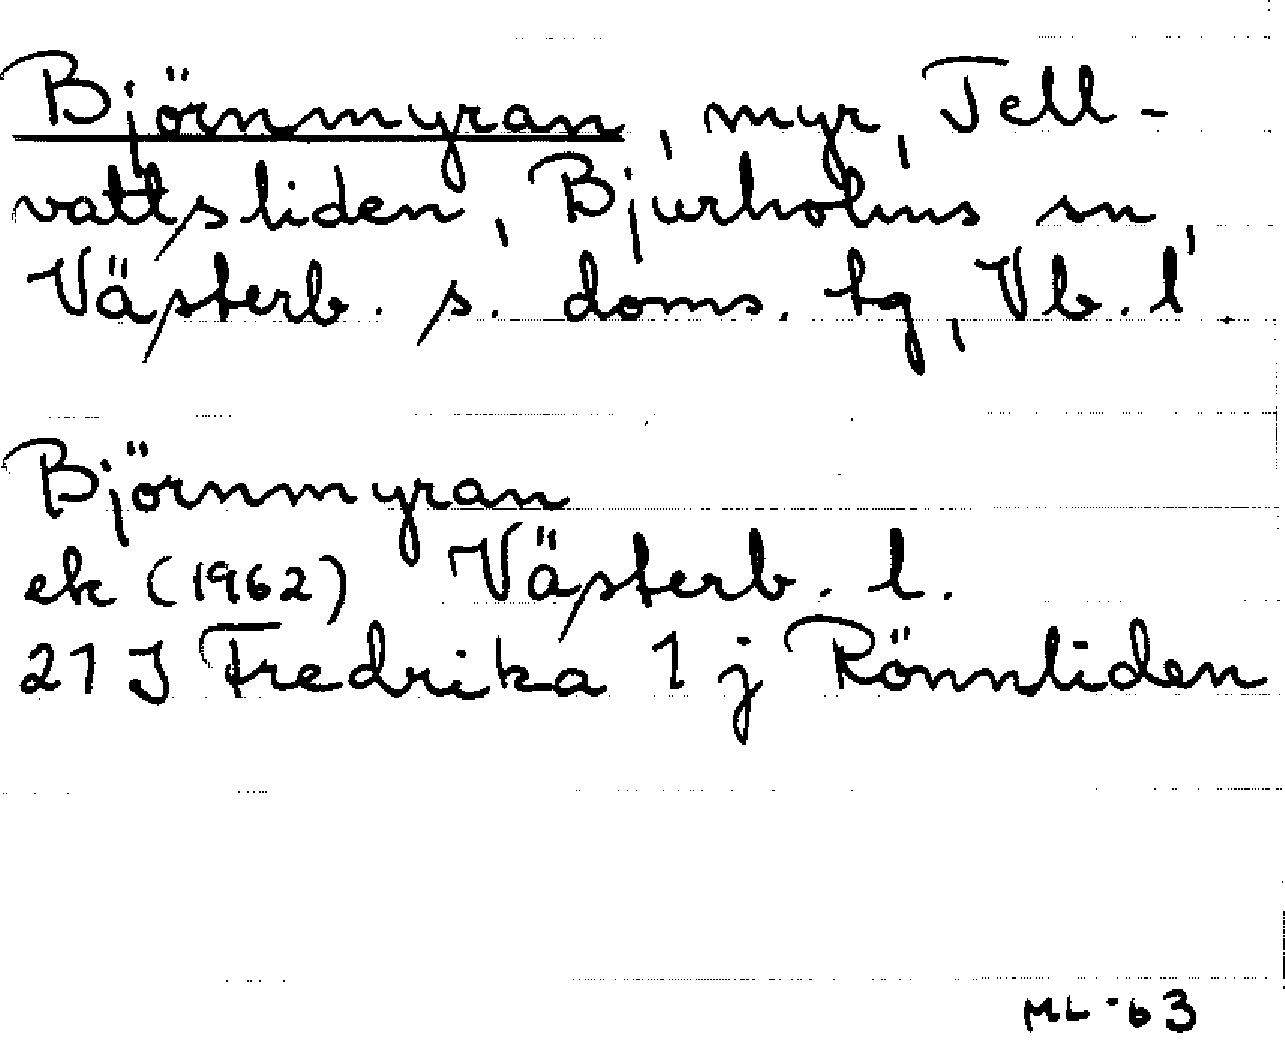 Björnmyran, myr, Tell-
vattsliden, Bjurholms sn,
Västerb. s. doms. tg, Vb. l.
Björnmyran
ek (1962) Västerb. l.
21 J Fredrika 1 j Rönnliden
ML -63